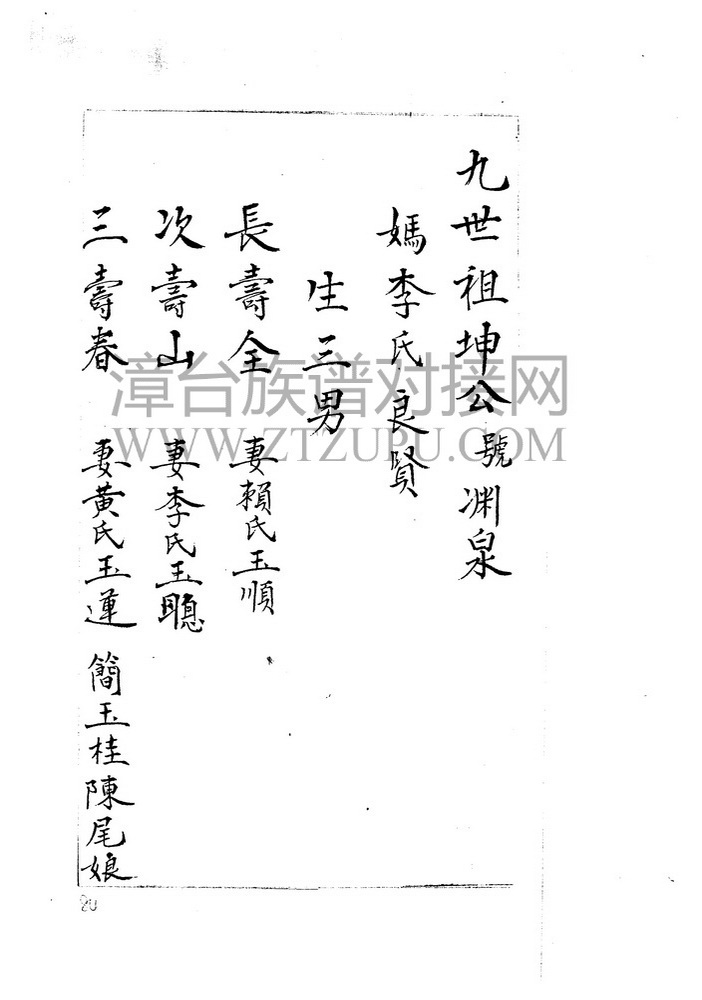 九世祖坤公號渊泉
媽李氏良賢
生三男
長壽全 妻賴氏玉順
次壽山 妻李氏玉聰
三壽春 妻黃氏玉蓮 簡玉桂陳尾娘
漳台族谱对接网
WWW.ZTZUPU.COM